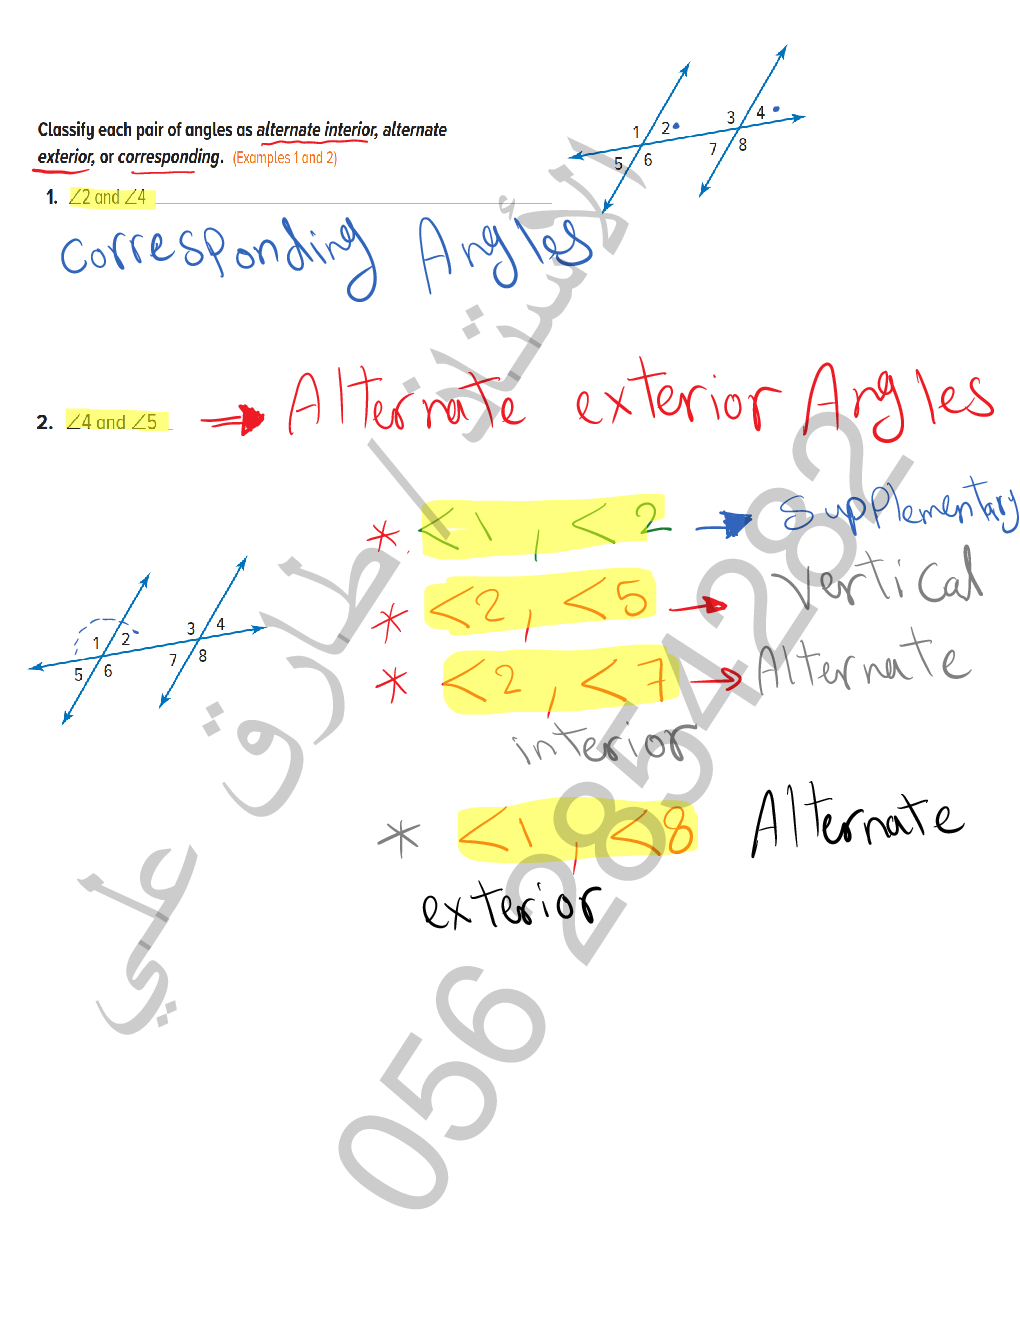 Classify each pair of angles as alternate interior, alternate
exterior, or corresponding. (Examples 1 and 2)
1 2 3 4
5 6 7 8
1. ∠2 and ∠4
Corresponding Angles
2. ∠4 and ∠5 → Alternate exterior Angles
* <1 , <2 → Supplementary
* <2 , <5 → Vertical
* <2 , <7 → Alternate
interior
1 2 3 4
5 6 7 8
* <1 , <8 Alternate
exterior
الأستاذ / طارق علي
056 2854282